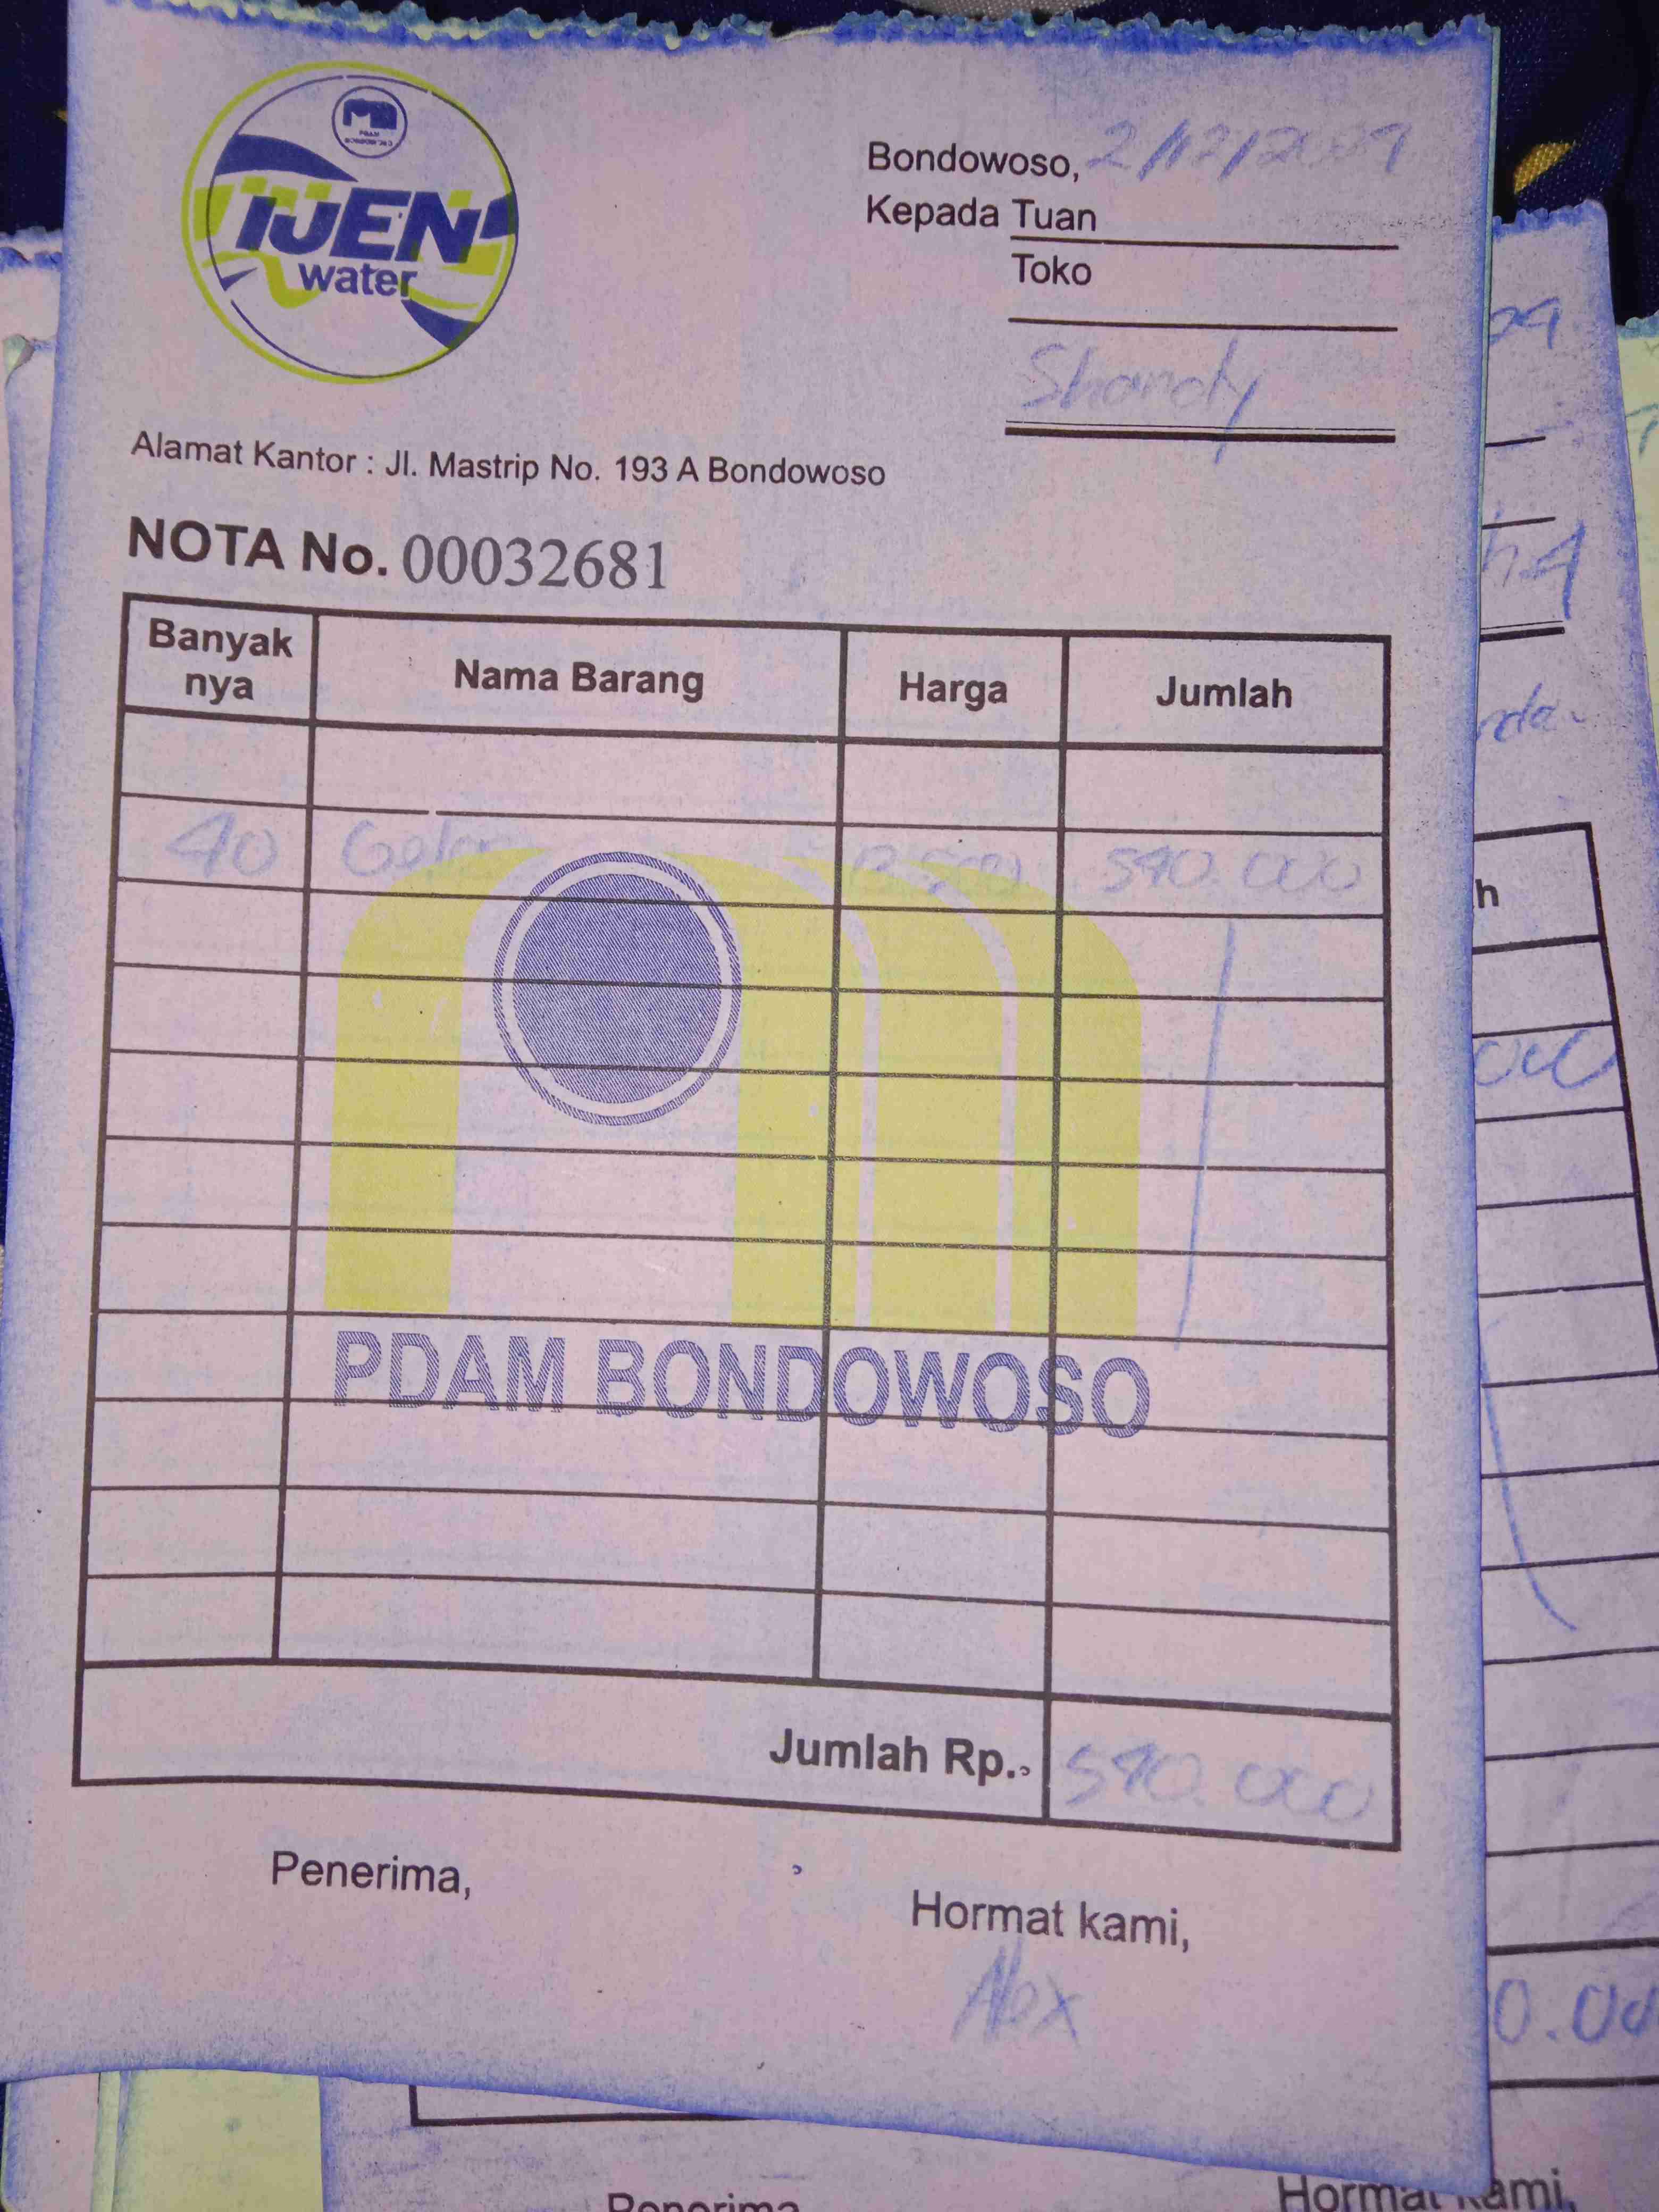 PDAM
IJEN
water
Bondowoso, 2/12/2024
Kepada Tuan
Toko
Shandy
Alamat Kantor : Jl. Mastrip No. 193 A Bondowoso
NOTA No. 00032681
Banyak nya Nama Barang Harga Jumlah
40 Galon 13.500 540.000
PDAM BONDOWOSO
Jumlah Rp. 540.000
Penerima,
Hormat kami,
Alex
h
0.00
Penerima
Hormat kami,